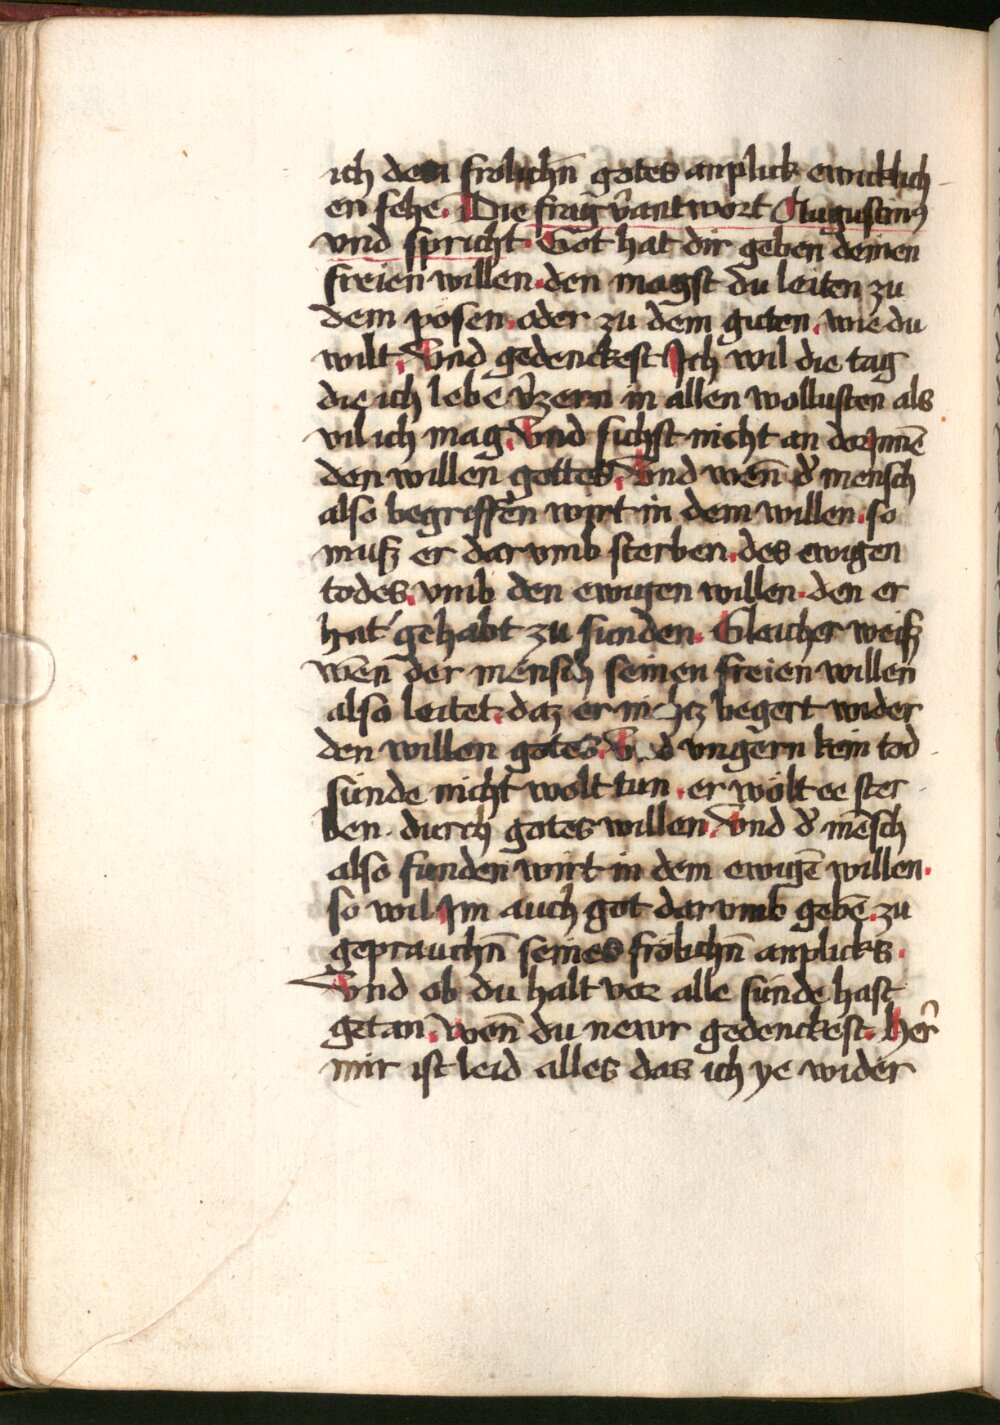 ich den frölichn̄ gotes anplick ewicklich
en sehe. Die frag v̄antwort Augustinus
vnd spricht. Got hat dir geben deinen
freien willen. den magst du leiten zu
dem pösen. oder zu dem guten. wie du
wilt. Vnd gedenckest Ich wil die tag
die ich lebe v̄zern in allen wollusten als
vil ich mag. Vnd sichst nicht an dor Jnnē
den willen gottes. Vnd wen̄ d' mensch
also begriffen wirt in dem willen. so
muß er darvmb sterben. des ewigen
todes. vmb den ewigen willen. den er
hat gehabt zu sunden. Gleicher weiß
wen̄ der mensch seinen freien willen
also leitet. daz er nichcz begert wider
den willen gotes. V d vngern kein tod
sünde nicht wolt tun. er wölt ee ster
ben. durch gotes willen. Vnd d' mēsch
also funden wirt in dem ewigē willen.
so wil Jm auch got darvmb gebē. zu
geprauchn̄ seines frölichn̄ anplicks.
Vnd ob du halt vor alle sünde hast
getan. wen̄ du newr gedenckest. her̄
mir ist leid alles das ich ye wider